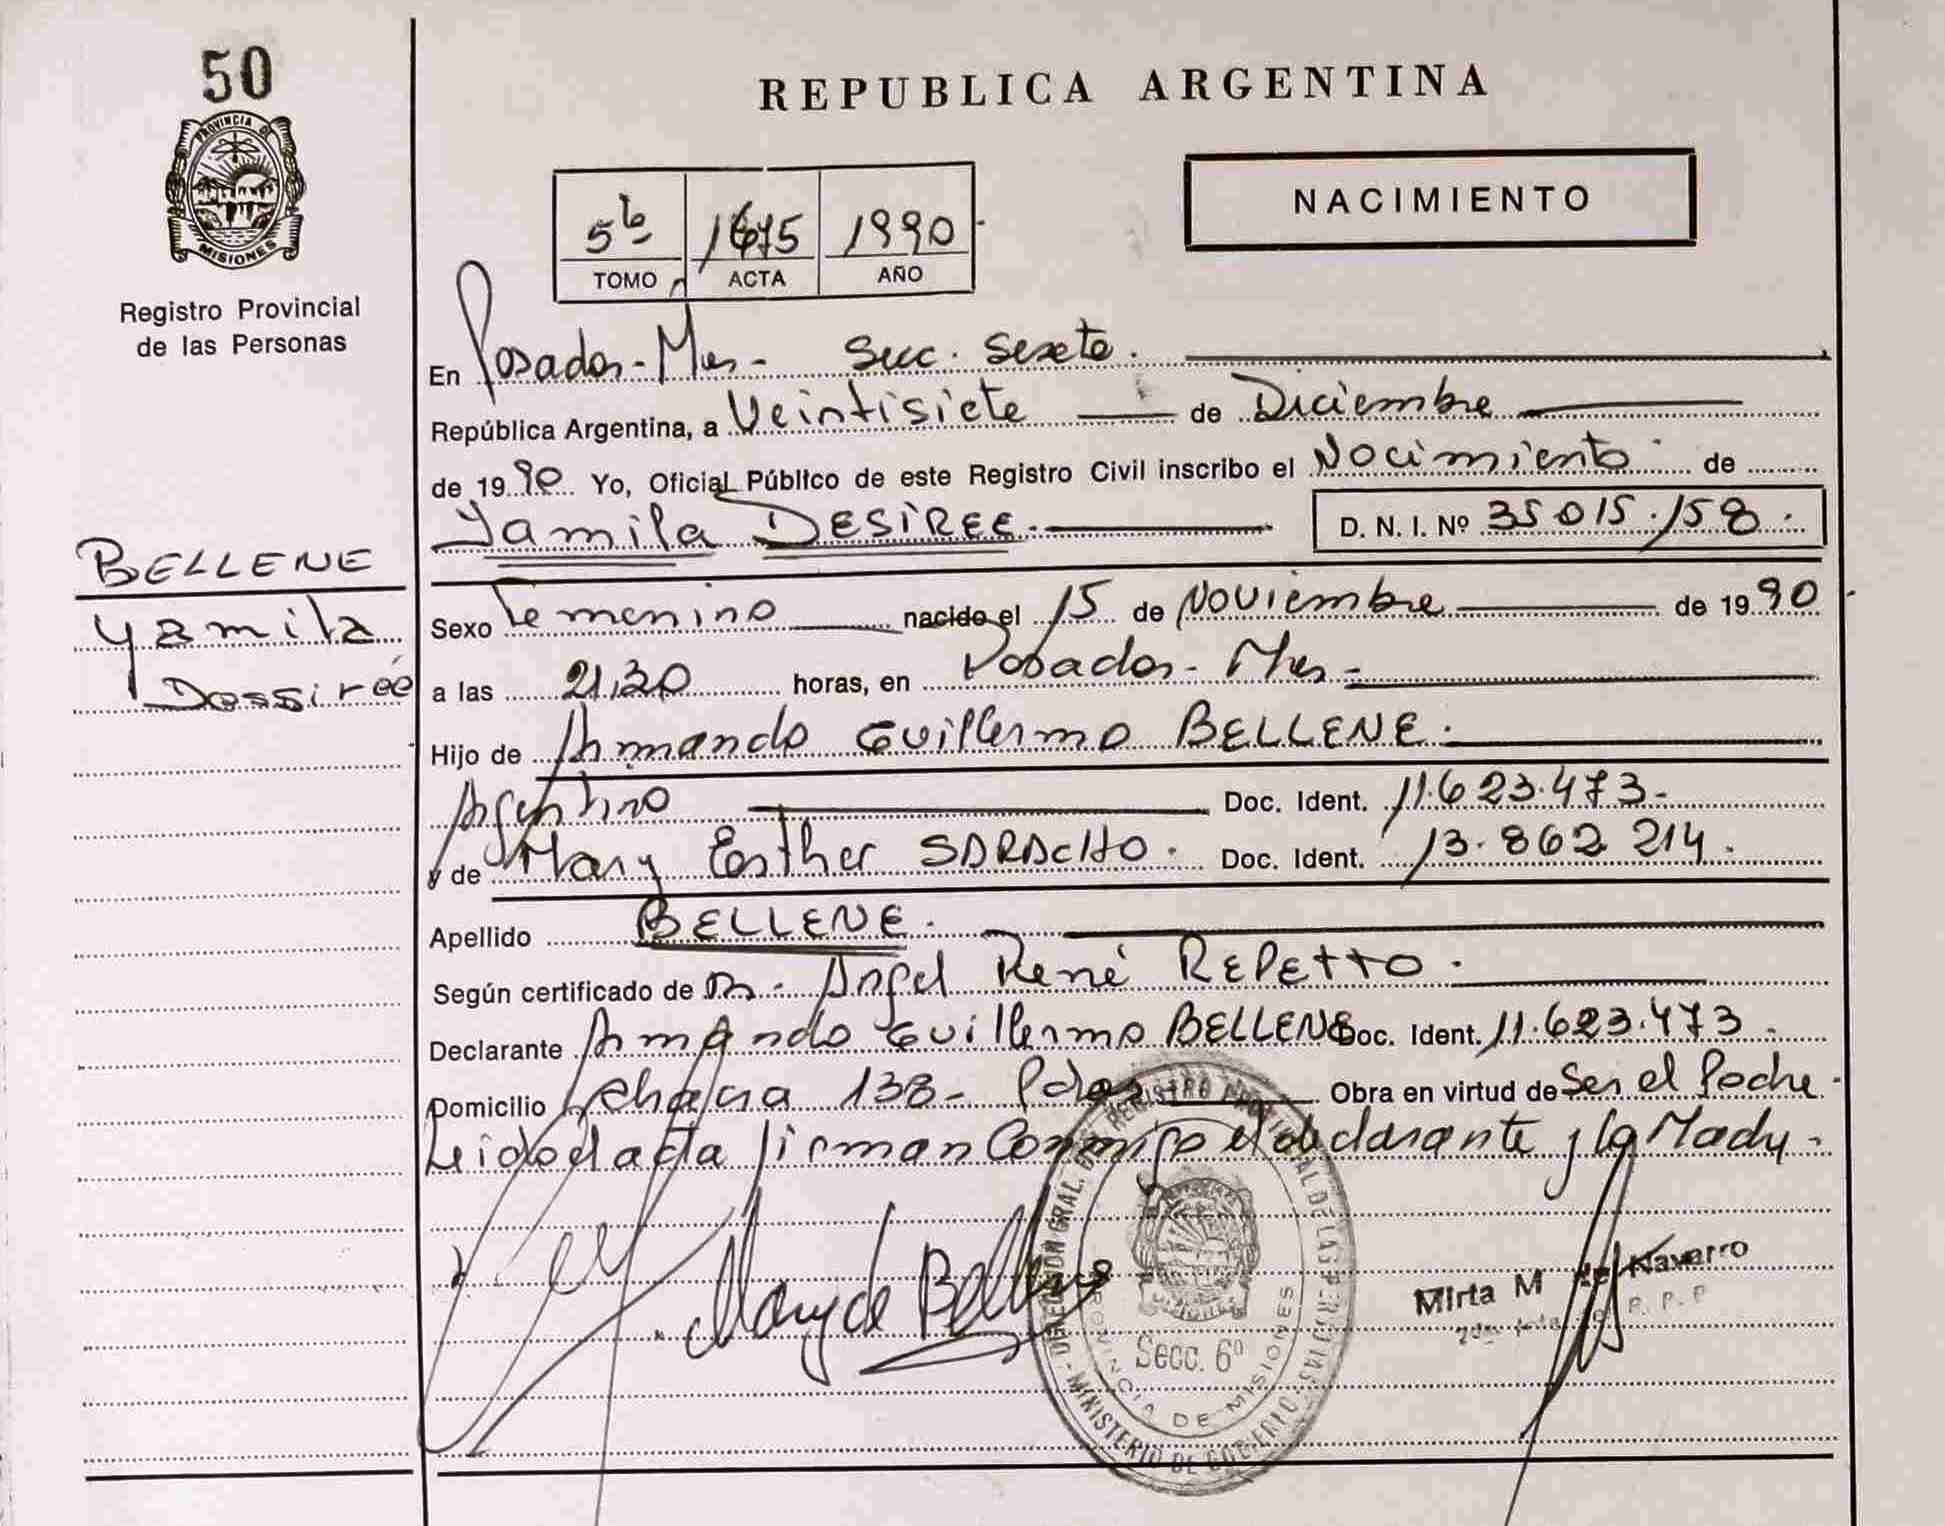 50
PROVINCIA DE
MISIONES
Registro Provincial
de las Personas
BELLENE
Yamila
Dessirée
REPUBLICA ARGENTINA
NACIMIENTO
5to 1675 1990
TOMO ACTA AÑO
En Posadas - Mnes - Secc. Sexta.
República Argentina, a Veintisiete de Diciembre
de 1990 Yo, Oficial Público de este Registro Civil inscribo el Nacimiento de
Yamila DESIREE. D. N. I. Nº 35 015.158.
Sexo Femenino nacido el 15 de Noviembre de 1990
a las 21,30 horas, en Posadas - Mnes -
Hijo de Armando Guillermo BELLENE.
Argentino Doc. Ident. 11.623.473.-
y de Mary Esther SARACHO. Doc. Ident. 13.862 214.
Apellido BELLENE.
Según certificado de Dr. Angel René REPETTO.
Declarante Armando Guillermo BELLENE Doc. Ident. 11.623.473.
Domicilio Chacra 138 - Pdas Obra en virtud de Ser el Padre.
Leido el acta firman Conmigo el declarante y la Madre.
Mary de Bellene
DIRECCION GRAL. DEL REGISTRO PROVINCIAL DE LAS PERSONAS
MINISTERIO DE GOBIERNO
PROVINCIA DE MISIONES
Secc. 6º
Mirta M de Navarro
R. P. P